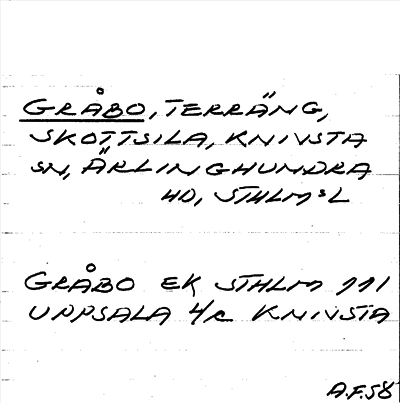 GRÅBO, TERRÄNG,
SKOTTSILA, KNIVSTA
SN, ÄRLINGHUNDRA
HD, STHLM:S L
GRÅBO EK STHLM 111
UPPSALA 4/c KNIVSTA
A.F. 58